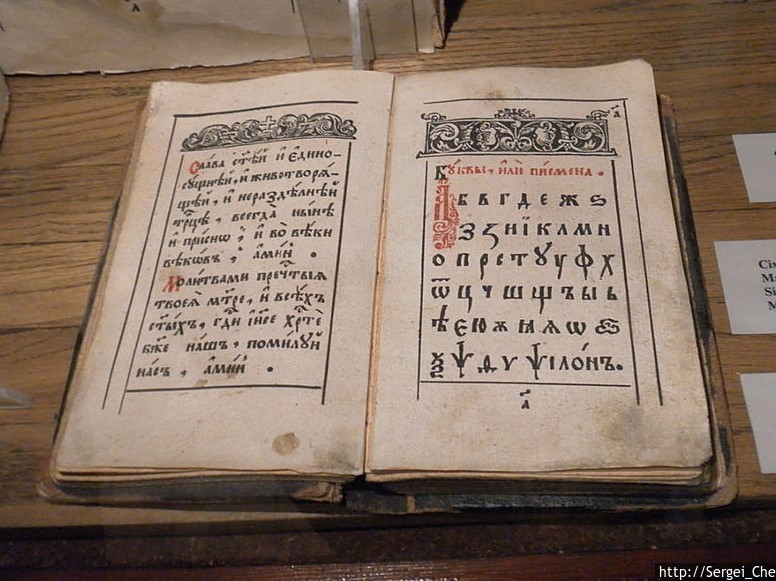 Сла́ва ст҃ѣ́й и҆ є҆дино-
су́щнѣй, и҆ животворѧ́-
щей, и҆ нераздѣ́лнѣй
трⷪ҇цѣ, всегда̀ ны́нѣ
и҆ при́снѡ, и҆ во вѣ́ки
вѣкѡ́въ, а҆ми́нь.
Моли́твами пречⷭ҇тыѧ
твоеѧ̀ мт҃ре, и҆ всѣ́хъ
ст҃ы́хъ, гдⷭ҇и і҆и҃се хрⷭ҇тѐ
бж҃е на́шъ, поми́луй
на́съ, а҆ми́нь.
а҃
Бꙋ́квы, и҆лѝ письмена̀.
А б в г д е ж ѕ
з ꙁ и ї к л м н
о п р с т ꙋ у ф х
ѿ ц ч ш щ ъ ы ь
ѣ є ю ѫ ꙗ ѧ ѡ
ѯ ѱ ѳ ѵ ѱїло́нъ.
а҃
http://Sergei_Che